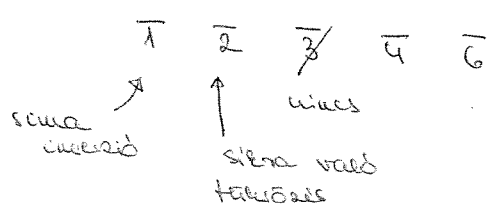 1̅ 2̅ 3̅ 4̅ 6̅
nincs
sima
inverzió
síkra való
tükrözés